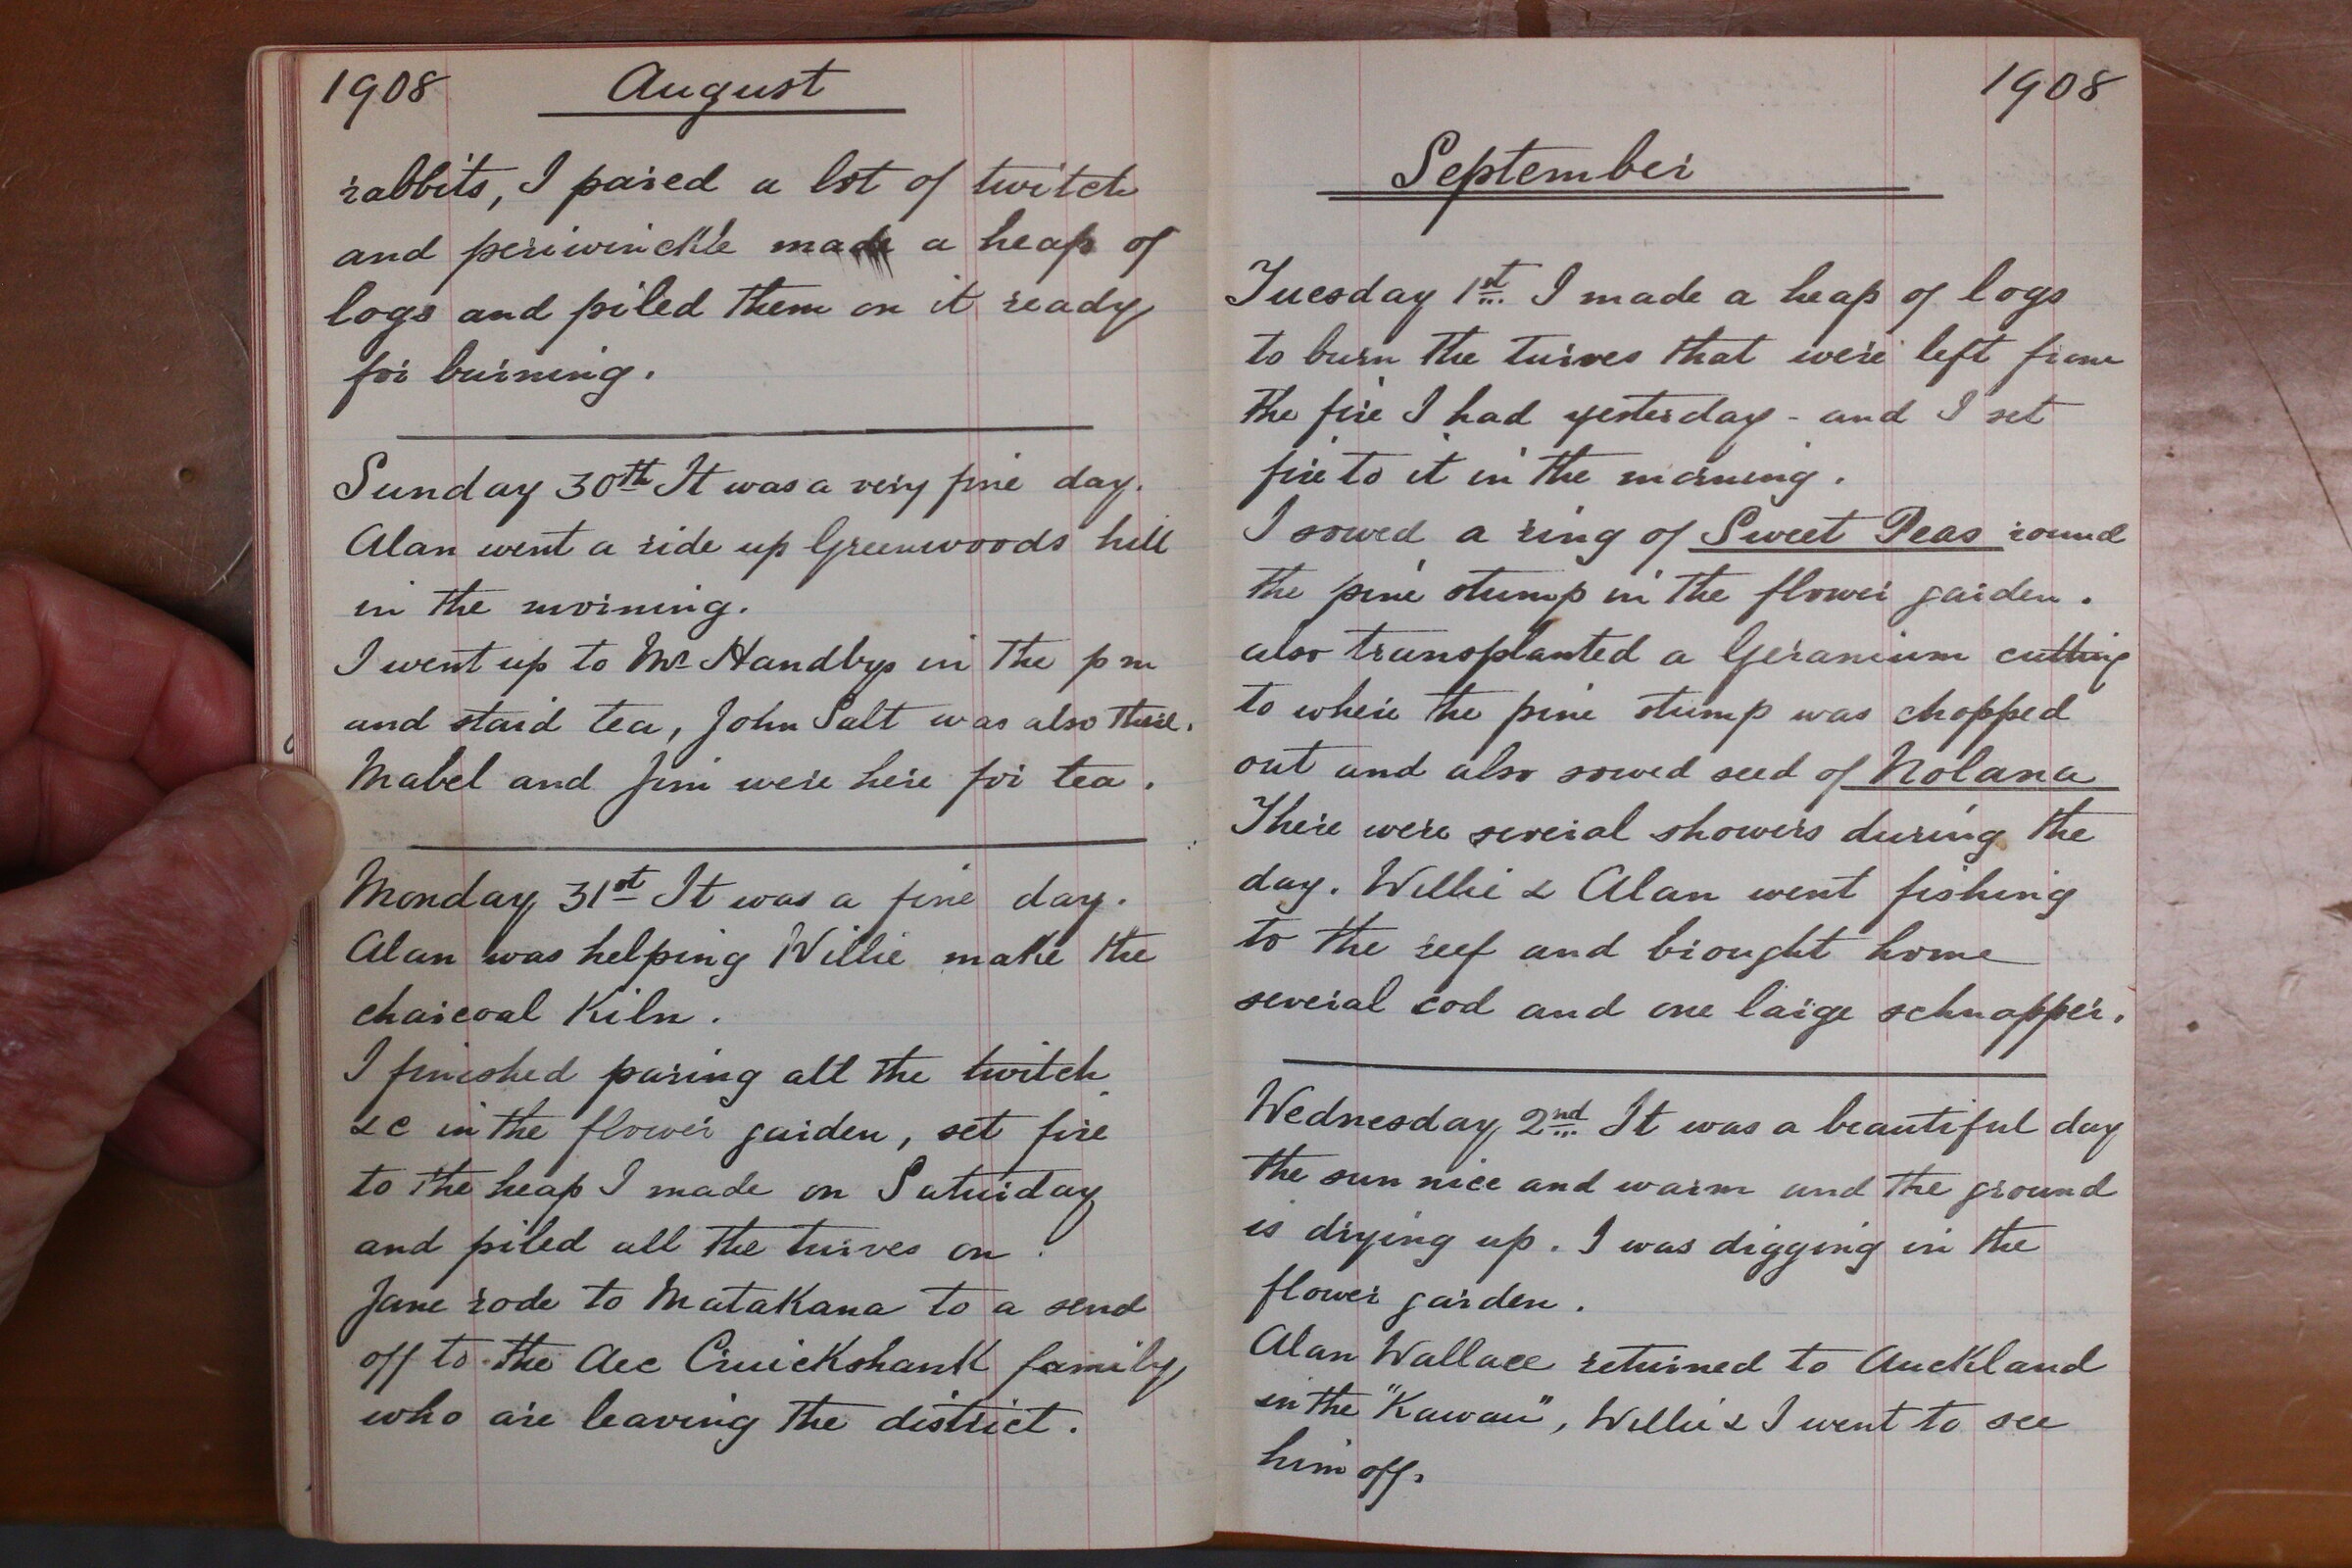 1908 August
rabbits, I pared a lot of twitch
and periwinckle made a heap of
logs and piled them on it ready
for burning.
Sunday 30th It was a very fine day.
Alan went a ride up Greenwoods hill
in the morning.
I went up to Mr Handbys in the pm
and staid tea, John Salt was also there.
Mabel and Jim were here for tea.
Monday 31st It was a fine day.
Alan was helping Willie make the
charcoal Kiln.
I finished paring all the twitch
&c in the flower garden, set fire
to the heap I made on Saturday
and piled all the turves on.
Jane rode to Matakana to a send
off to the Aec Cruickshank family,
who are leaving the district.
1908
September
Tuesday 1st I made a heap of logs
to burn the turves that were left from
the fire I had yesterday - and I set
fire to it in the morning.
I sowed a ring of Sweet Peas round
the pine stump in the flower garden.
also transplanted a Geranium cutting
to where the pine stump was chopped
out and also sowed seed of Nolana
There were several showers during the
day. Willie & Alan went fishing
to the reef and brought home
several cod and one large schnapper.
Wednesday 2nd It was a beautiful day
the sun nice and warm and the ground
is drying up. I was digging in the
flower garden.
Alan Wallace returned to Auckland
in the "Kawau", Willie & I went to see
him off.